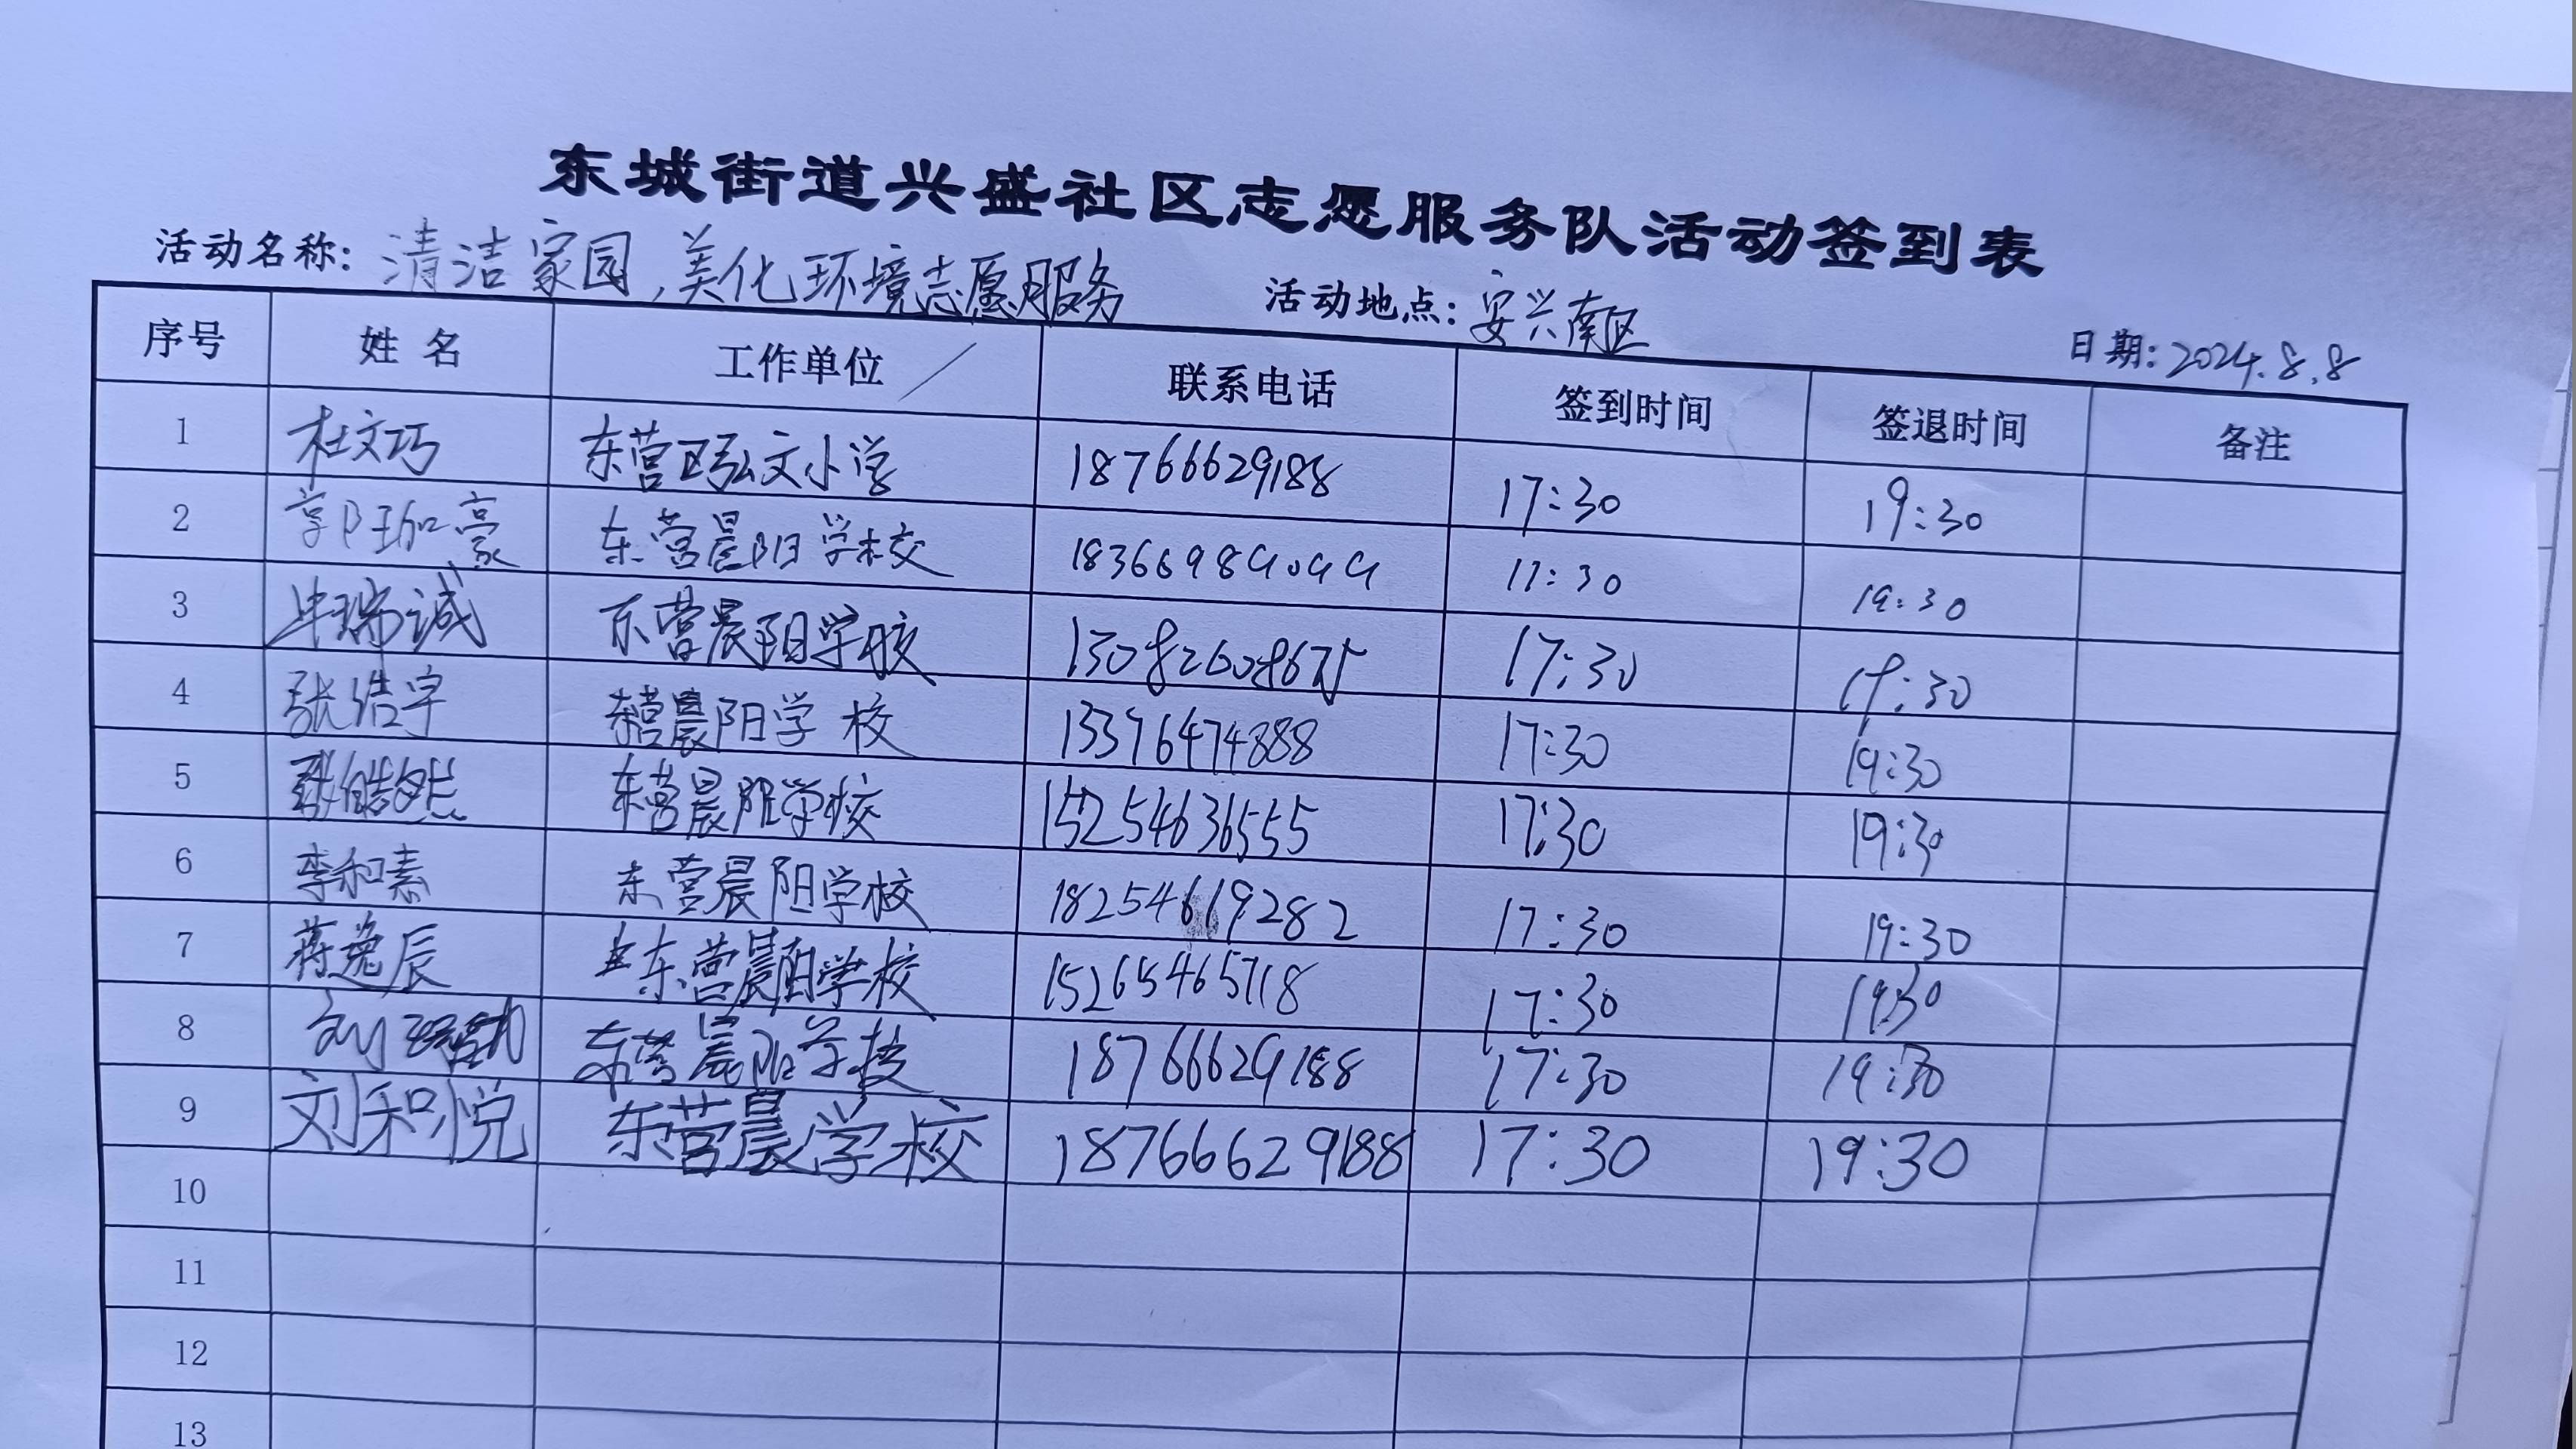 东城街道兴盛社区志愿服务队活动签到表
活动名称：清洁家园，美化环境志愿服务 活动地点：安兴南区 日期：2024.8.8
序号 姓名 工作单位 联系电话 签到时间 签退时间 备注
1 杜文巧 东营区弘文小学 18766629188 17:30 19:30
2 东营晨阳学校 18366989099 17:30 19:30
3 毕瑞诚 东营晨阳学校 13082608675 17:30 19:30
4 张浩宇 东营晨阳学校 13376474888 17:30 19:30
5 张皓然 东营晨阳学校 15254636555 17:30 19:30
6 李和素 东营晨阳学校 18254619282 17:30 19:30
7 蒋逸辰 东营晨阳学校 15265465718 17:30 19:30
8 刘 东营晨阳学校 18766629188 17:30 19:30
9 刘和悦 东营晨学校 18766629188 17:30 19:30
10
11
12
13